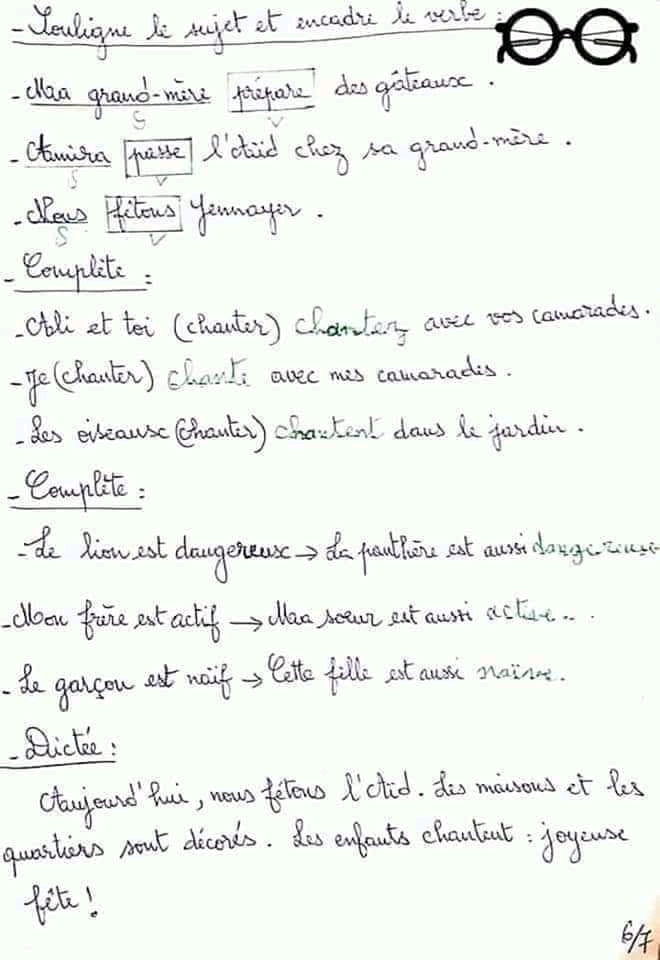 - Souligne le sujet et encadre le verbe :
- Ma grand-mère prépare des gâteaux .
S V
- Amira passe l'Aïd chez sa grand-mère .
S V
- Nous fêtons Yennayer .
S V
- Complète :
- Ali et toi (chanter) chantez avec vos camarades .
- Je (chanter) chante avec mes camarades .
- Les oiseaux (chanter) chantent dans le jardin .
- Complète :
- Le lion est dangereux → La panthère est aussi dangereuse
- Mon frère est actif → Ma sœur est aussi active .. .
- Le garçon est naïf → Cette fille est aussi naïve .
- Dictée :
Aujourd'hui , nous fêtons l'Aïd . Les maisons et les
quartiers sont décorés . Les enfants chantent : joyeuse
fête !
6/7